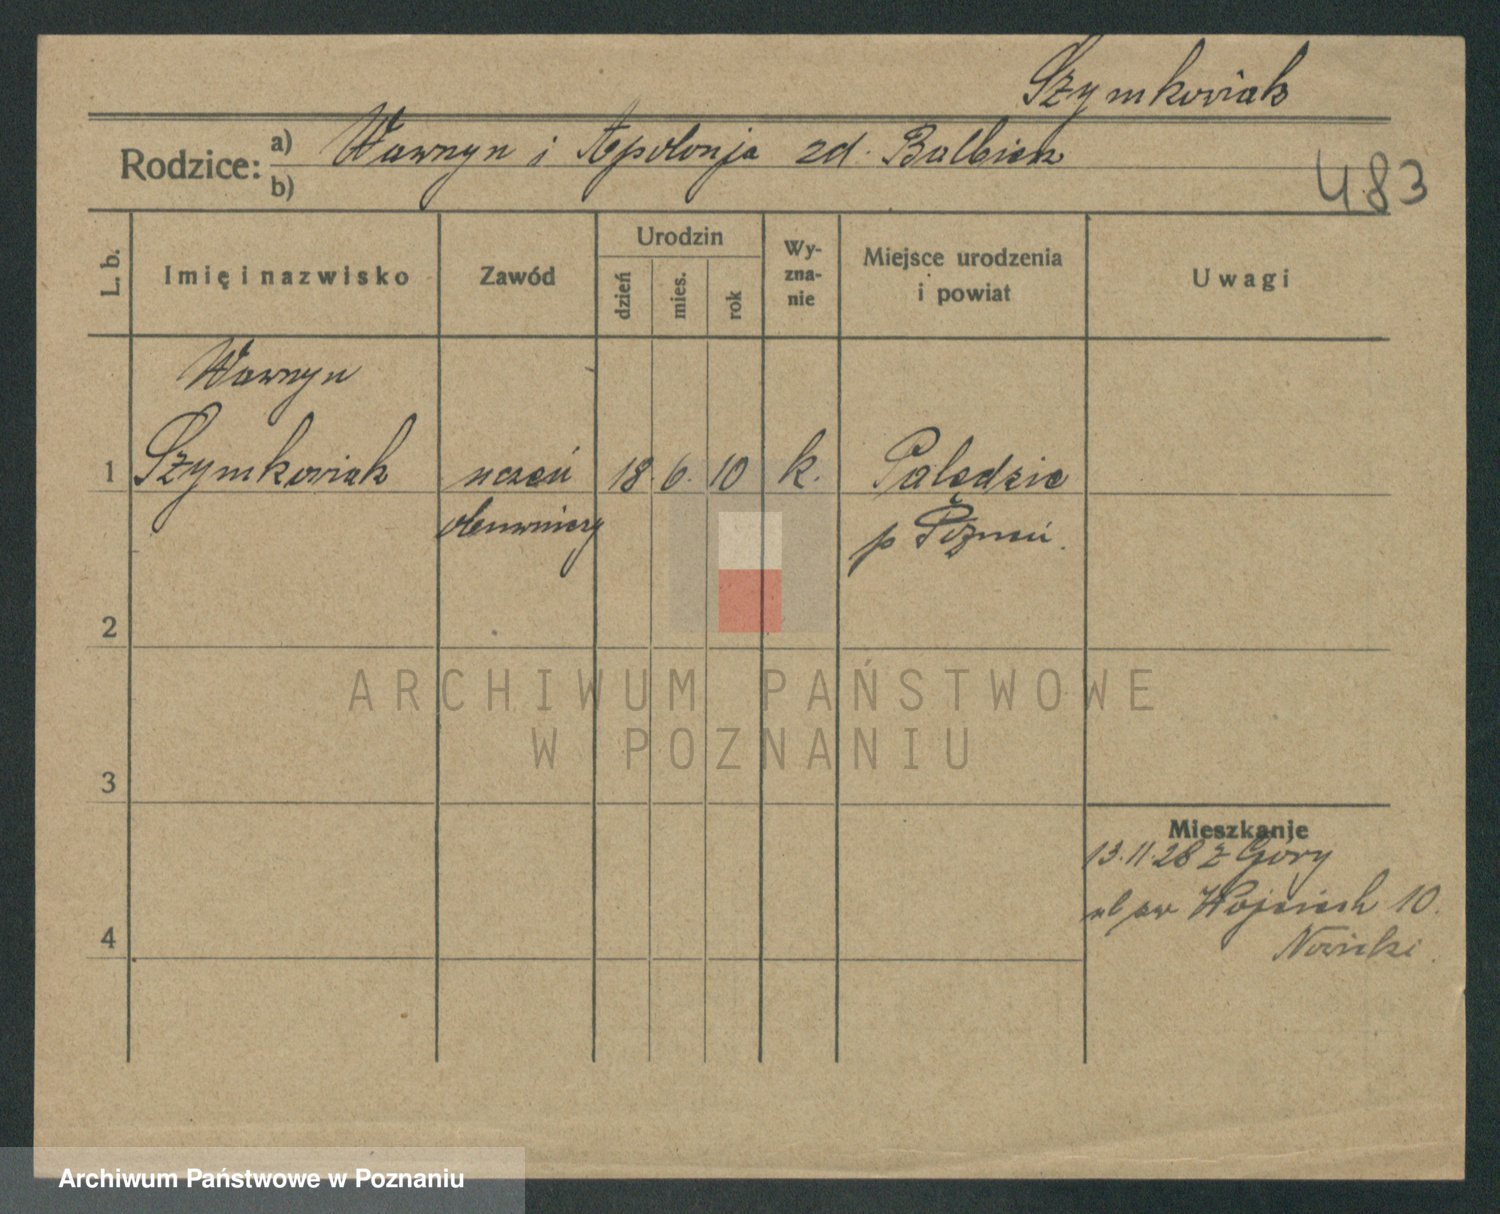 Szymkowiak
Rodzice: a) Wawrzyn i Apolonja zd. Balbierz
b)
483
L. b.
Imię i nazwisko
Zawód
Urodzin
dzień
mies.
rok
Wy-
zna-
nie
Miejsce urodzenia
i powiat
Uwagi
Wawrzyn
1 Szymkowiak uczeń 18. 6. 10 k. Palędzie
p Poznań.
2
ARCHIWUM PAŃSTWOWE
W POZNANIU
3
Mieszkanie
13.11.28 z Góry
św Wojciech 10.
4
Nowicki.
Archiwum Państwowe w Poznaniu